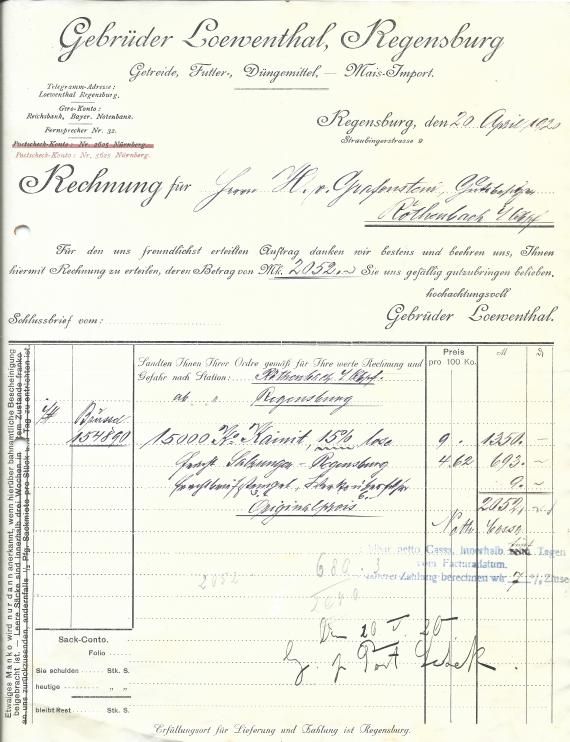 Gebrüder Loewenthal, Regensburg
Getreide, Futter-, Düngemittel, — Mais-Import.
Telegramm-Adresse:
Loewenthal Regensburg.
Giro-Konto:
Reichsbank, Bayer. Notenbank.
Fernsprecher Nr. 32.
Postscheck-Konto: Nr. 2625 Nürnberg.
Postscheck-Konto: Nr. 5625 Nürnberg.
Regensburg, den 20 April 1920
Straubingerstrasse 9
Rechnung für Herrn H. v. Grafenstein, Gutsbesitzer
Röthenbach
Für den uns freundlichst erteilten Auftrag danken wir bestens und beehren uns, Ihnen
hiermit Rechnung zu erteilen, deren Betrag von Mk. 2052.– Sie uns gefällig gutzubringen belieben.
hochachtungsvoll
Schlussbrief vom:
Gebrüder Loewenthal.
Etwaiges Manko wird nur dann anerkannt, wenn hierüber bahnamtliche Bescheinigung
beigebracht ist. — Leere Säcke sind innerhalb drei Wochen in Zustande franko
an uns zurückzusenden, andernfalls Pfg. Sackmiete pro Stück u. Tag zu entrichten ist.
Preis
pro 100 Ko.
M
Sandten Ihnen Ihrer Ordre gemäß für Ihre werte Rechnung und
Gefahr nach Station: Röthenbach
ab " Regensburg
154890
15000 Ko Kainit, 15% lose 9. 1350. –
Fracht Salzungen - Regensburg 4.62 693. –
9. –
Originalpreis 2052.
Netto Cassa
netto Cassa, innerhalb Tagen
vom Facturadatum.
Zahlung berechnen wir 7 % Zinse
2052
680
Den 20 V. 20
Sack-Conto.
Folio
Sie schulden Stk. S.
heutige " "
bleibt Rest Stk. S.
Erfüllungsort für Lieferung und Zahlung ist Regensburg.